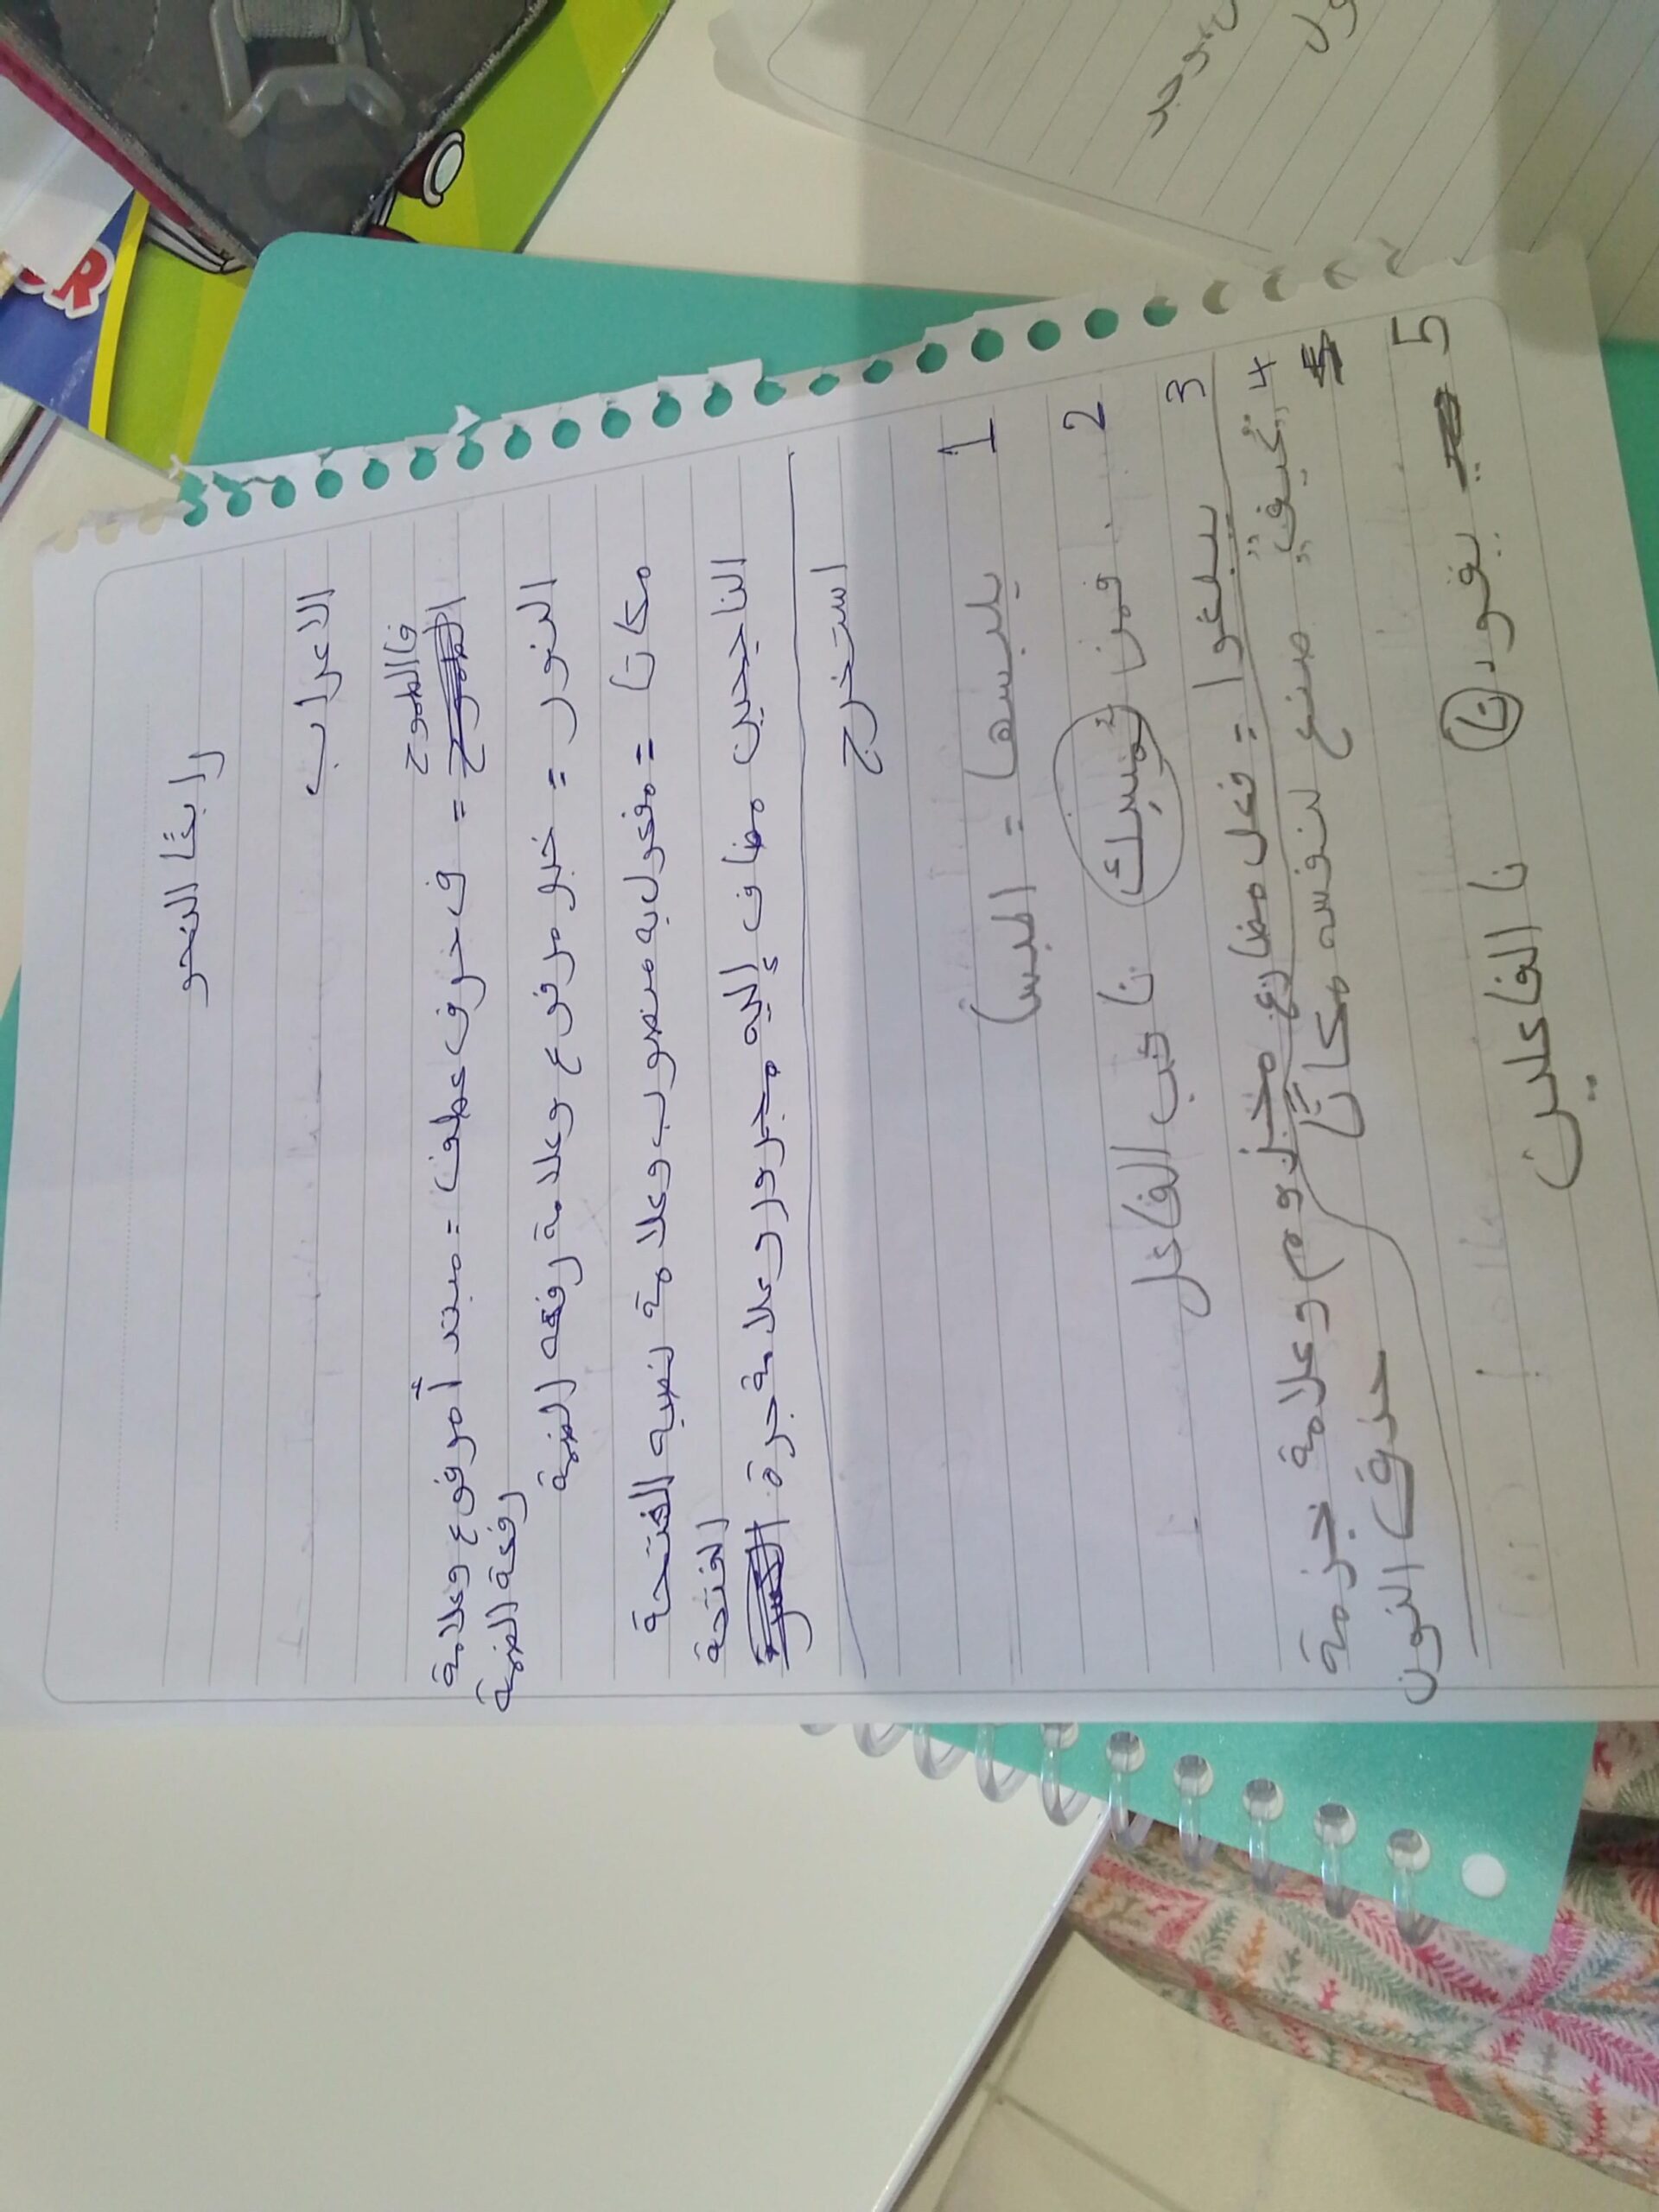 رابعًا النحو
الاعراب
فالطموح
= ف حرف عطف = مبتدأ مرفوع وعلامة
رفعة الضمة
النور = خبر مرفوع وعلامة رفعه الضمة
مكانا = مفعول به منصوب وعلامة نصبه الفتحة
الفتحة
الناجحين مضاف إليه مجرور وعلامة جرة
استخرج
1 يلبسها = المبس)
2 فمن نائب الفاعل
3 يبلغوا = فعل مضارع مجزوم وعلامة جزمة
حزف النون
4 صنع لنفسه مكانًا
5 يقودنا نا الفاعلين
R